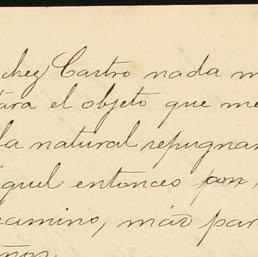 chez Castro nada m
tára el objeto que me
la natural repugnan
iguel entonces por,
camino, más par
ños.